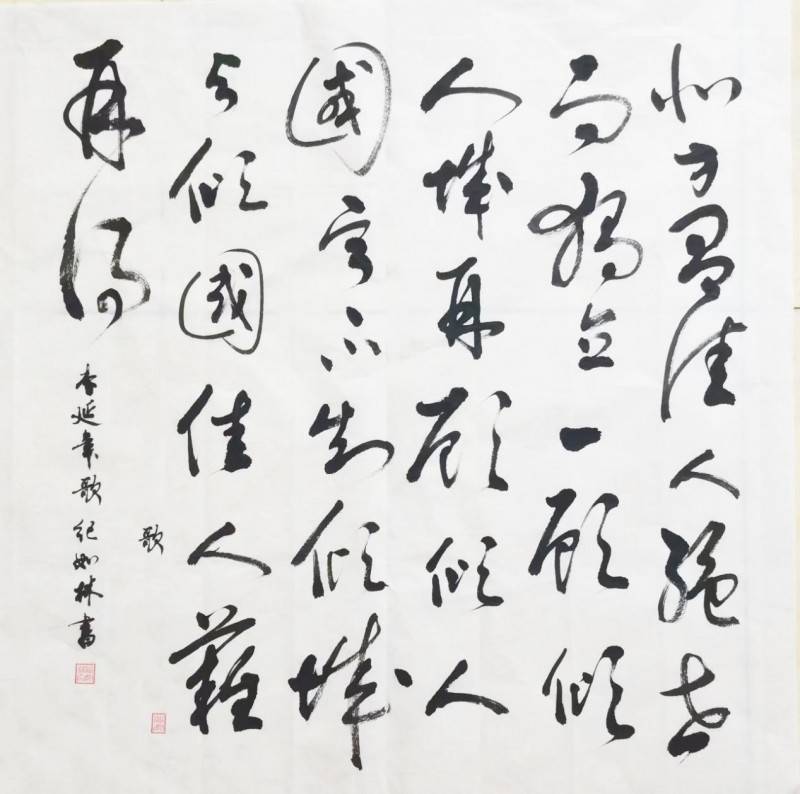 北方有佳人絕世
而獨立一顧傾
人城再顧傾人
國寧不知傾城
与傾國佳人難
再得
歌
李延年歌紀如林書